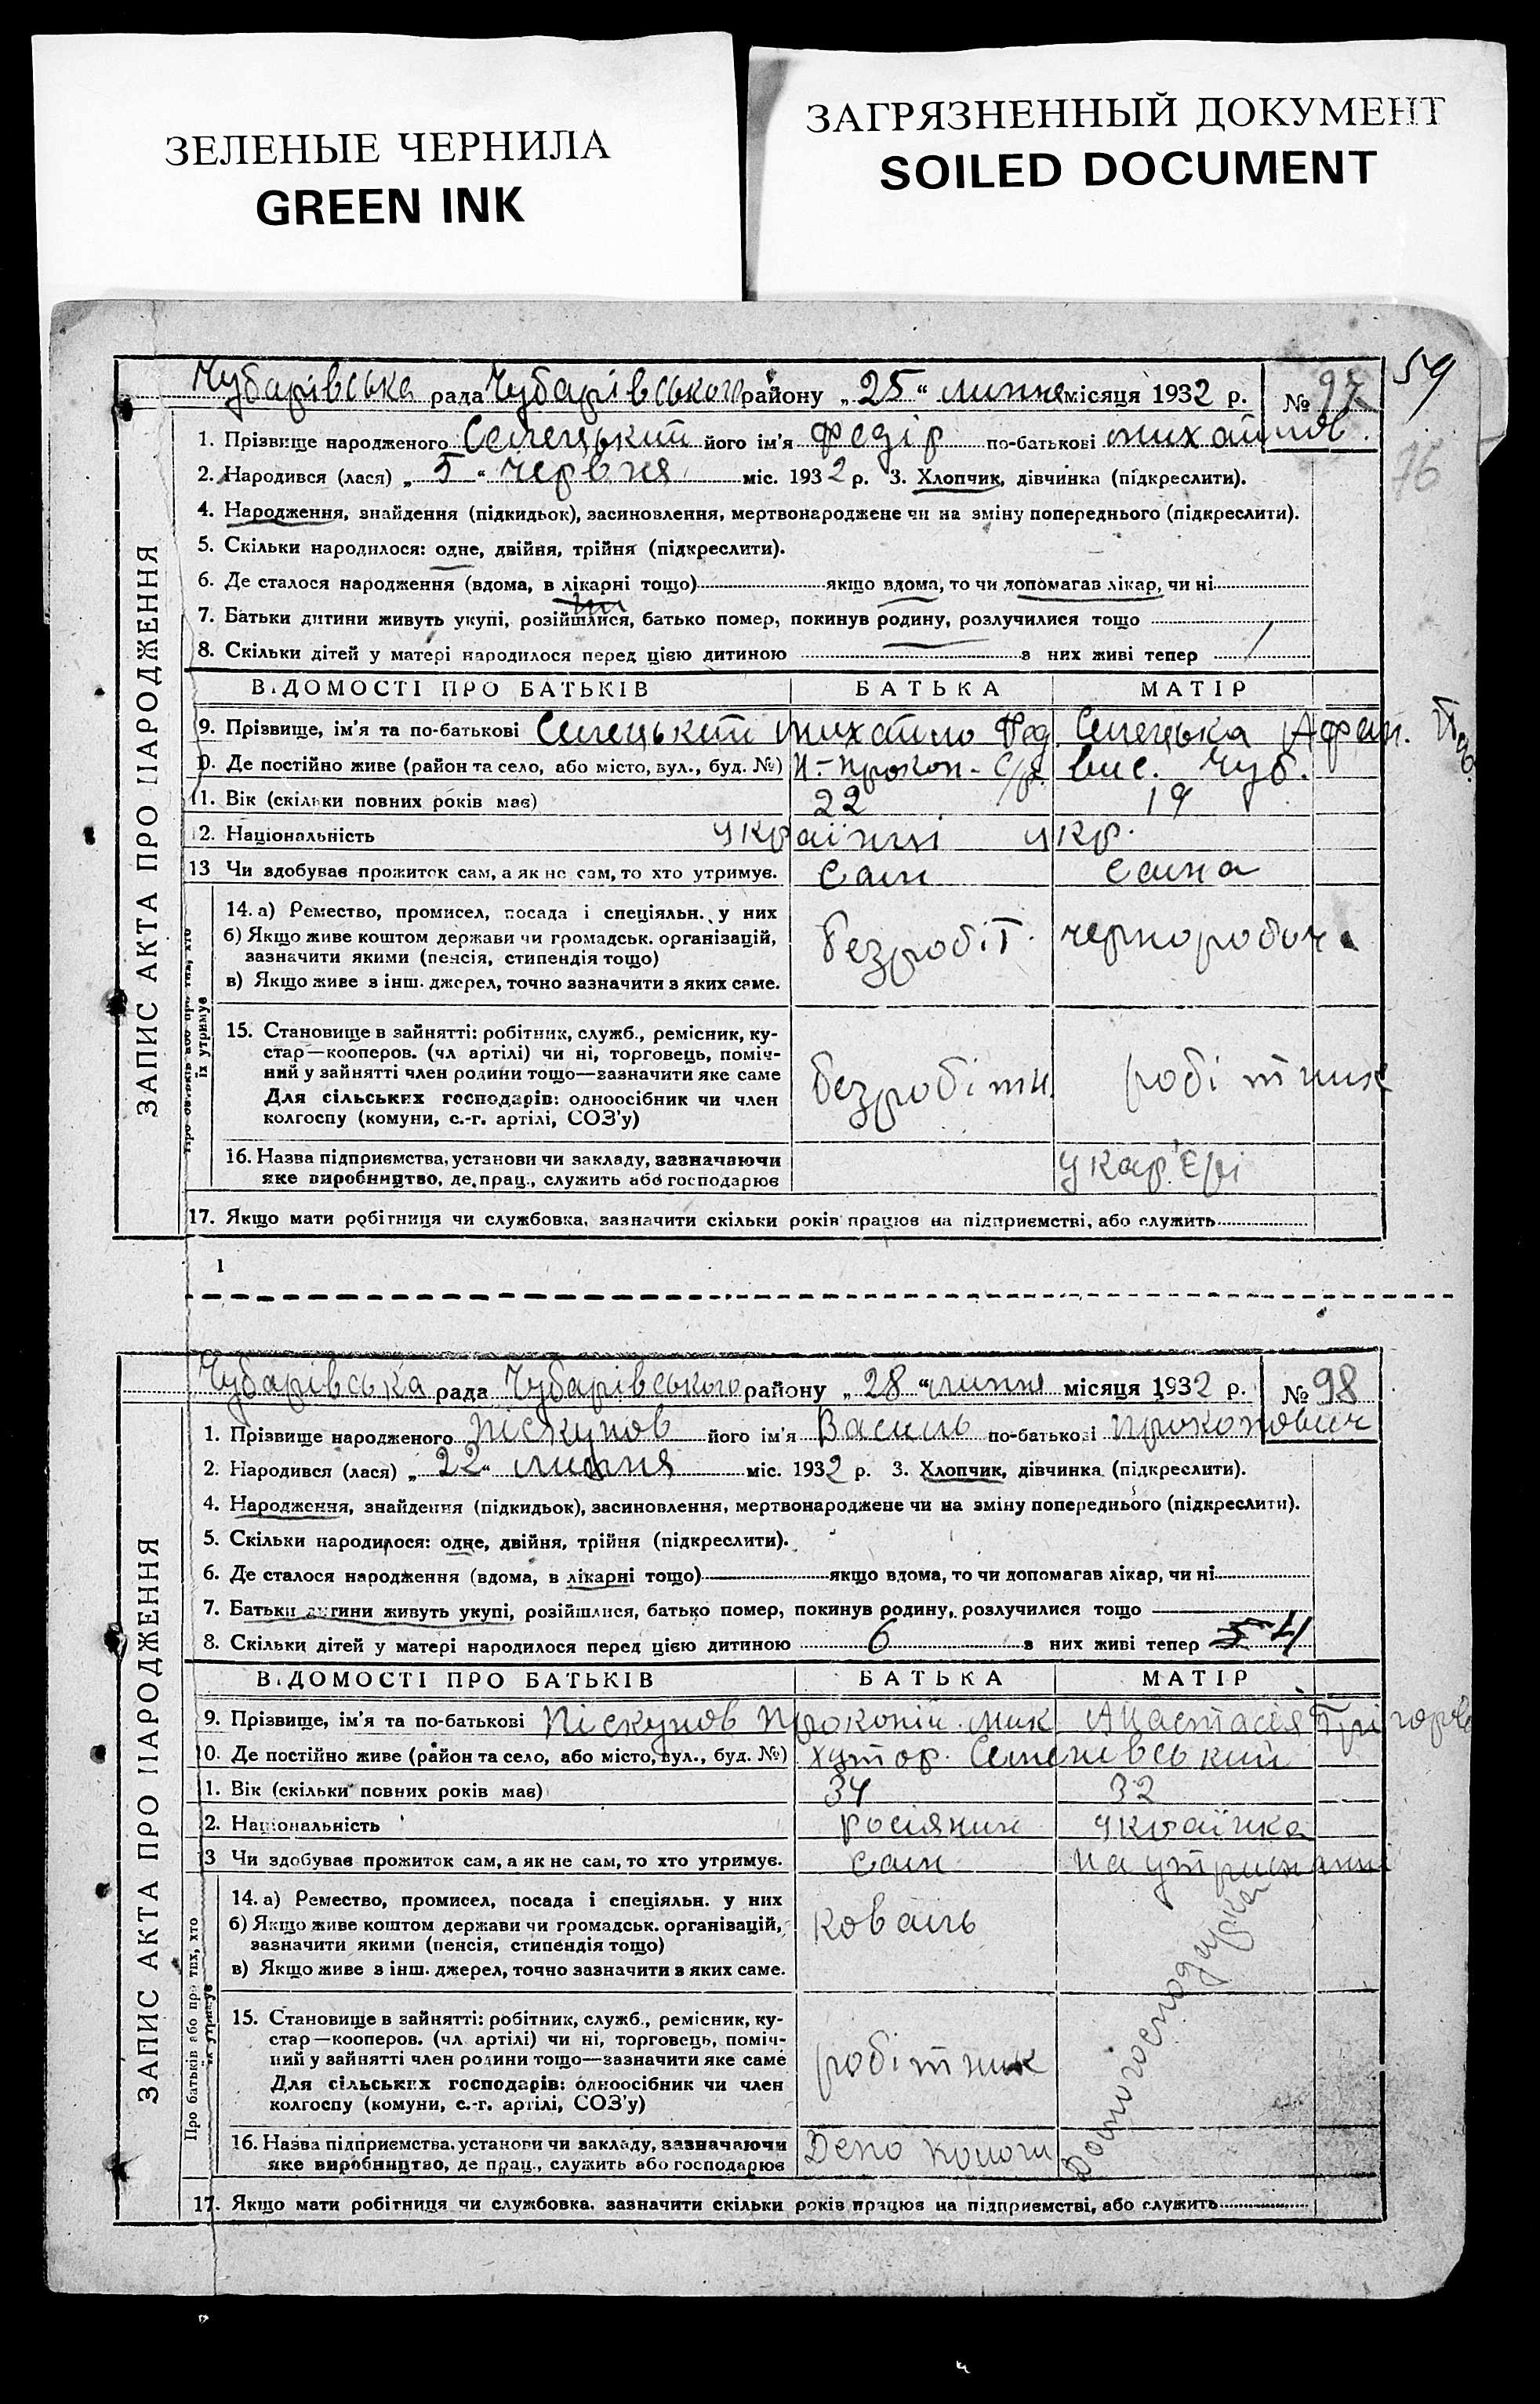 ЗЕЛЕНЫЕ ЧЕРНИЛА
GREEN INK
ЗАГРЯЗНЕННЫЙ ДОКУМЕНТ
SOILED DOCUMENT
59
76
ЗАПИС АКТА ПРО НАРОДЖЕННЯ
Чубарівська рада Чубарівського району „25“ липня місяця 1932 р. № 97
1. Прізвище народженого Селецький його ім'я Федір по-батькові Михайлов.
2. Народився (лася) „5“ червня міс. 1932 р. 3. Хлопчик, дівчинка (підкреслити).
4. Народження, знайдення (підкидьок), засиновлення, мертвонароджене чи на зміну попереднього (підкреслити).
5. Скільки народилося: одне, двійня, трійня (підкреслити).
6. Де сталося народження (вдома, в лікарні тощо) якщо вдома, то чи допомагав лікар, чи ні
7. Батьки дитини живуть укупі, розійшлися, батько помер, покинув родину, розлучилися тощо
8. Скільки дітей у матері народилося перед цією дитиною з них живі тепер
ВІДОМОСТІ ПРО БАТЬКІВ БАТЬКА МАТІР
9. Прізвище, ім'я та по-батькові Селецький Михайло Фед. Селецька Афан. Пав.
10. Де постійно живе (район та село, або місто, вул., буд. №) Н-Прокоп. С/р. вис. Чуб.
11. Вік (скільки повних років має) 22 19
12. Національність україн укр.
13 Чи здобував прожиток сам, а як не сам, то хто утримує. Сам сама
Про батьків або про тих, хто їх утримує
14. а) Ремество, промисел, посада і спеціяльн. у них
б) Якщо живе коштом держави чи громадськ. організацій,
зазначити якими (пенсія, стипендія тощо)
в) Якщо живе з інш. джерел, точно зазначити з яких саме.
безробіт. чорнороб
15. Становище в зайнятті: робітник, служб., ремісник, ку-
стар—кооперов. (чл артілі) чи ні, торговець, поміч-
ний у зайнятті член родини тощо—зазначити яке саме
Для сільських господарів: одноосібник чи член
колгоспу (комуни, с.-г. артілі, СОЗ'у)
безробітн. робітник
16. Назва підприємства, установи чи закладу, зазначаючи
яке виробництво, де прац., служить або господарює
у кар'єрі
17. Якщо мати робітниця чи службовка, зазначити скільки років працює на підприємстві, або служить
1
ЗАПИС АКТА ПРО НАРОДЖЕННЯ
Чубарівська рада Чубарівського району „28“ липня місяця 1932 р. № 98
1. Прізвище народженого Піскунов його ім'я Василь по-батькові Прокопович
2. Народився (лася) „22“ липня міс. 1932 р. 3. Хлопчик, дівчинка (підкреслити).
4. Народження, знайдення (підкидьок), засиновлення, мертвонароджене чи на зміну попереднього (підкреслити).
5. Скільки народилося: одне, двійня, трійня (підкреслити).
6. Де сталося народження (вдома, в лікарні тощо) якщо вдома, то чи допомагав лікар, чи ні
7. Батьки дитини живуть укупі, розійшлися, батько помер, покинув родину, розлучилися тощо
8. Скільки дітей у матері народилося перед цією дитиною 6 з них живі тепер 5 4
ВІДОМОСТІ ПРО БАТЬКІВ БАТЬКА МАТІР
9. Прізвище, ім'я та по-батькові Піскунов Прокопій Мик Анастасія Грігоров
10. Де постійно живе (район та село, або місто, вул., буд. №) хутор. Семенівський
11. Вік (скільки повних років має) 34 32
12. Національність росіянин українка
13 Чи здобував прожиток сам, а як не сам, то хто утримує. Сам на утриманні
Про батьків або про тих, хто їх утримує
14. а) Ремество, промисел, посада і спеціяльн. у них
б) Якщо живе коштом держави чи громадськ. організацій,
зазначити якими (пенсія, стипендія тощо)
в) Якщо живе з інш. джерел, точно зазначити з яких саме.
коваль
Домогосподарка
15. Становище в зайнятті: робітник, служб., ремісник, ку-
стар—кооперов. (чл артілі) чи ні, торговець, поміч-
ний у зайнятті член родини тощо—зазначити яке саме
Для сільських господарів: одноосібник чи член
колгоспу (комуни, с.-г. артілі, СОЗ'у)
робітник
16. Назва підприємства, установи чи закладу, зазначаючи
яке виробництво, де прац., служить або господарює
Депо Кологи
17. Якщо мати робітниця чи службовка, зазначити скільки років працює на підприємстві, або служить